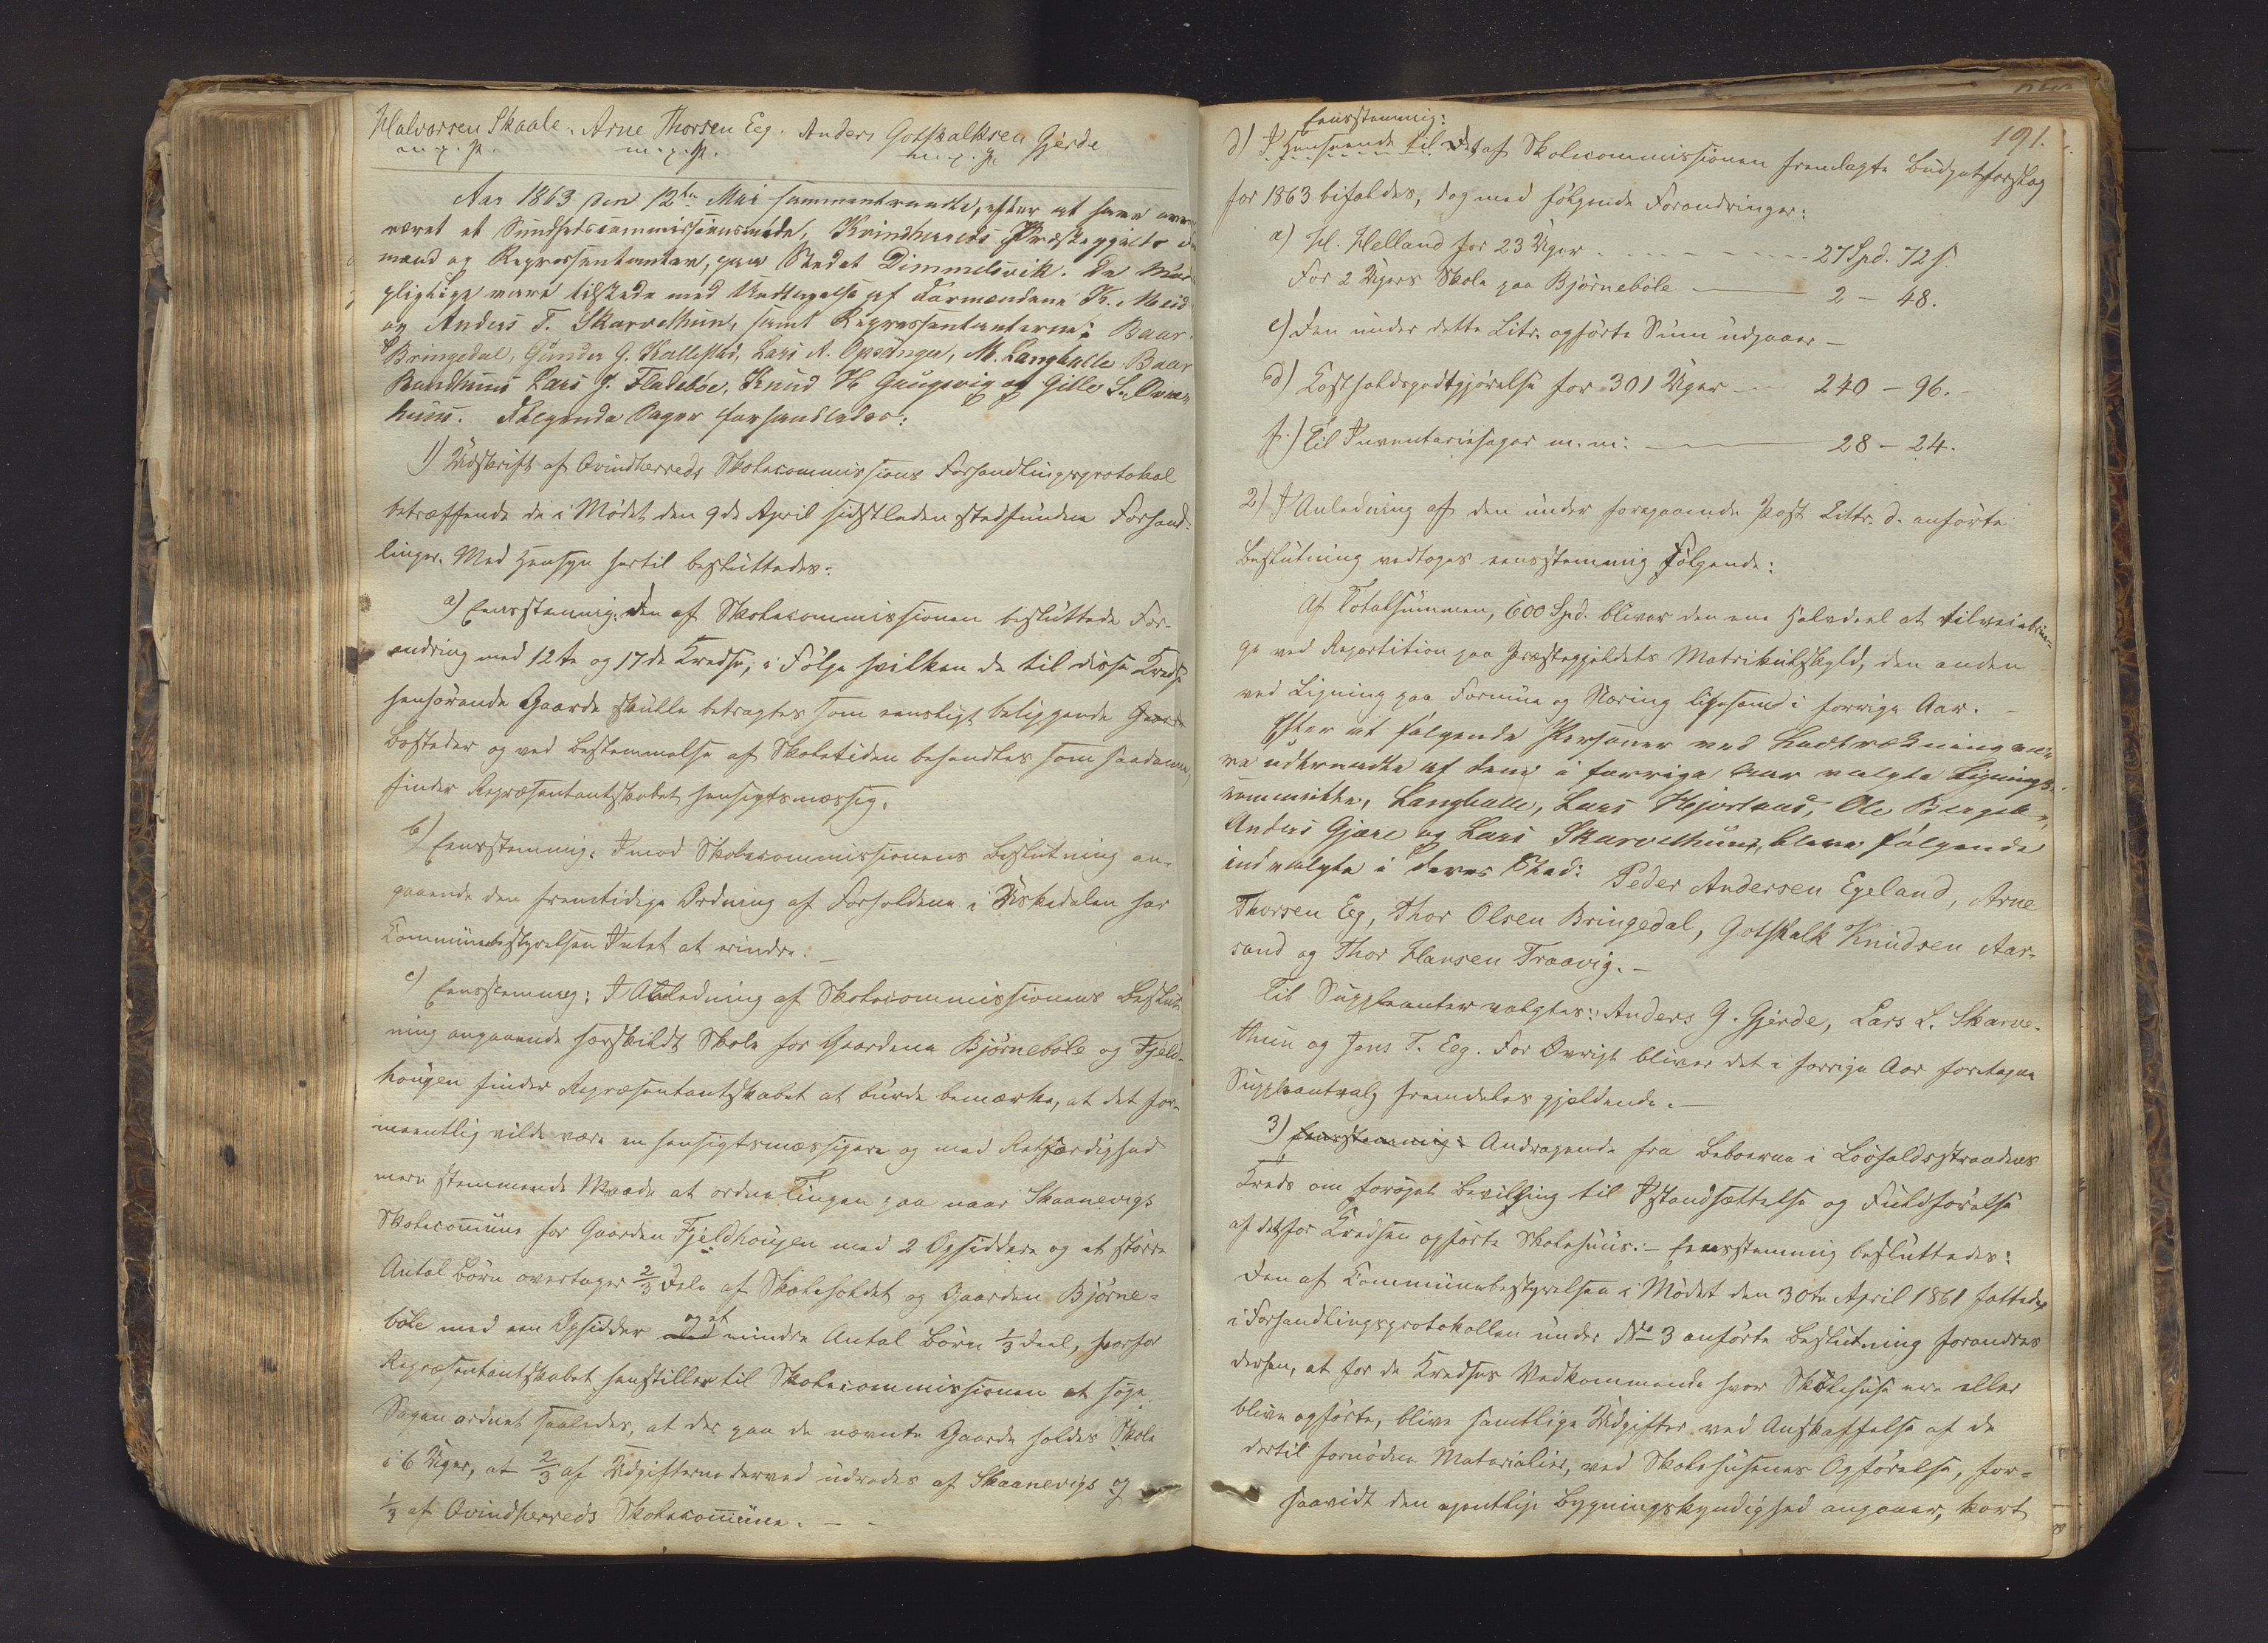 Halvorsen Skaale. Arne Thorsen Eeg. Anders Gotskalksen Gjerde
m. p. P. m. p. P. m. p. P.
Aar 1863 den 12te Mai sammentraadte, efter at have over
været et Sundhedscommissionsmøde, Kvindherreds Præstegjælds
mænd og Repræsentanter, paa Stedet Dimmelsvik. De Møde
pligtige vare tilstede med Undtagelse af Formændene K. Meid
og Anders T. Skarvethun, samt Repræsentanterne: Baar
Bringedal, Gunder G. Kallestad, Lars A. Opsanger, M. Langballe Baar
Sandhuus Lars J. Fladebøe, Knud H Guugsvig og Gitle S.
huus. Følgende Sager forhandledes:
1) Udskrift af Qvindherreds Skolecommissions Forhandlingsprotokol
betræffende de i Mødet den 9de April sidstleden stedfundne Forhand-
linger. Med Hensyn hertil besluttedes:
a) Eensstemmig: Den af Skolecommissionen besluttede For-
andring med 12te og 17de Kreds, i Følge hvilken de til disse Kredse
henhørende Gaarde skulle betragtes som eensligt beliggende
Bosteder og ved Bestemmelse af Skoletiden behandles som saadanne,
finder Repræsentantskabet hensigtsmæssig.
b) Eensstemmig: Imod Skolecommissionens Beslutning an-
gaaende den fremtidige Ordning af Forholdene i Uskedalen har
Communebestyrelsen Intet at erindre. –
c) Eensstemmig: I Anledning af Skolecommissionens Beslut-
ning angaaende særskildt Skole for Gaardene Bjørnebøle og Fjeld-
hougen finder Repræsentantskabet at burde bemærke, at det for-
mentlig vilde være en hensigtsmæssigere og med Retfærdighed
mere stemmende Maade at ordne Tingen paa naar Skaanevigs
Skolecommune for Gaarden Fjeldhougen med 2 Opsiddere og et større
Antal Børn overtager 2/3 Dele af Skoleholdet og Gaarden Bjørne-
bøle med een Opsidder og et mindre Antal Børn 1/3 Deel, hvorfor
Repræsentantskabet henstiller til Skolecommissionen at søge
Sagen ordnet saaledes, at der paa de nævnte Gaarde holdes Skole
i 6 Uger, at 2/3 af Udgifterne derved udredes af Skaanevigs og
1/3 af Qvindherreds Skolecommune. – –
191.
Eensstemmig:
d) I Henseende til det af Skolecommissionen fremlagte Budgetforslag
for 1863 bifaldes, dog med følgende Forandringer:
a) H. Helland for 23 Uger - - - - - - 27 Spd. 72 s.
For 2 Ugers Skole paa Bjørnebøle — 2 – 48.
c) Den under dette Litr. opførte Sum udgaaer –
d) Kostholdsgodtgjørelse for 301 Uger — 240 – 96. –
f.) Til Inventariesager m. m: — 28 – 24.
2) I Anledning af den under foregaaende Post Littr. d. anførte
Beslutning vedtoges eensstemmig Følgende:
Af Totalsummen, 600 Spd. bliver den ene Halvdeel at tilveiebrin-
ge ved Repartition paa Præstegjeldets Matrikulskyld, den anden
ved Ligning paa Formue og Næring ligesom i forrige Aar. –
Efter at følgende Personer ved Lodtrækning va-
re udtraadte af den i forrige Aar valgte Lignings-
committe, Langballe, Lars Hjortaas, Ole Berget,
Anders Gjære og Lars Skarvethun, bleve følgende
indvalgte i deres Sted: Peder Andersen Egeland, Arne
Thorsen Eeg, Thor Olsen Bringedal, Gotskalk Knudsen Aar-
sand og Thor Hansen Traavig. –
Til Suppleanter valgtes: Anders G. Gjerde, Lars L. Skarve-
thun og Jens T. Eeg. For Øvrigt bliver det i forrige Aar foretagne
Suppleantvalg fremdeles gjældende. –
3) Eensstemmig: Andragende fra Beboerne i Løfaldsstrandens
Kreds om forøget Bevilgning til Istandsættelse og Fuldførelse
af det for Kredsen opførte Skolehuus. – Eensstemmig besluttedes:
Den af Communebestyrelsen i Mødet den 30te April 1861 fattede
i Forhandlingsprotokollen under No 3 anførte Beslutning forandres
derhen, at for de Kredses Vedkommende hvor Skolehuse ere eller
blive opførte, blive samtlige Udgifter ved Anskaffelse af de
dertil fornødne Materialier, ved Skolehusenes Opførelse, for-
saavidt den egentlige Bygningskyndighed angaaer, kort